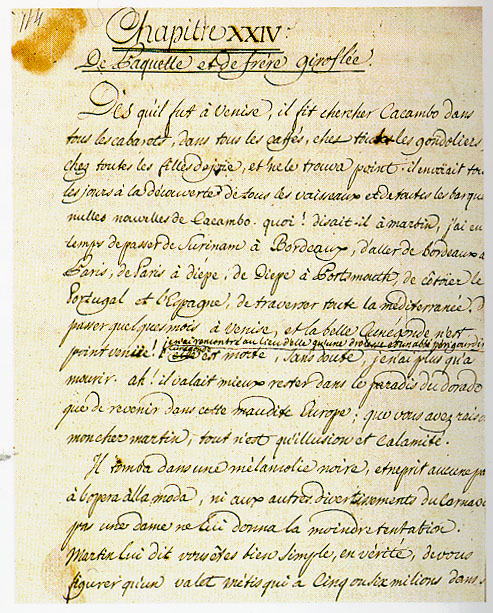 114
Chapitre XXIV.
De Paquette et de frère giroflée.
Dès quil fut à Venise, il fit chercher Cacambo dans
tous les cabarets, dans tous les caffés, chez toutes les gondoliers
chez toutes les filles de joie, et ne le trouva point. il envoiait tou
les jours à la découverte de tous les vaisseaux et de toutes les barque
nulles nouvelles de Cacambo. quoi! disait-il à martin, j'ai eu
temps de passer de Surinam à Bordeaux, d'aller de bordeaux a
Paris, de Paris à diépe, de Diepe à Portsmouth, de cotoier le
Portugal et l'Espagne, de traverser toute la méditerranée, d
passer quelques mois à Venise, et la belle Cunegonde n'est
point venue! je n'ai rencontré au lieu d'elle qu'une drolesse et un abbé périgourdin
Cunegonde est morte, sans doute, je n'ai plus qu'a
mourir. ah! il valait mieux rester dans le paradis du dorado
que de revenir dans cette maudite Europe; que vous avez raiso
mon cher martin, tout n'est qu'illusion et calamité.
Il tomba dans une mélancolie noire, et ne prit aucune pa
à l'opera alla moda, ni aux autres divertissements du Carnava
pas une dame ne lui donna la moindre tentation.
Martin lui dit vous êtes bien simple, en vérité, de vous
figurer qu'un valet métis qui a cinq ou six milions dans s